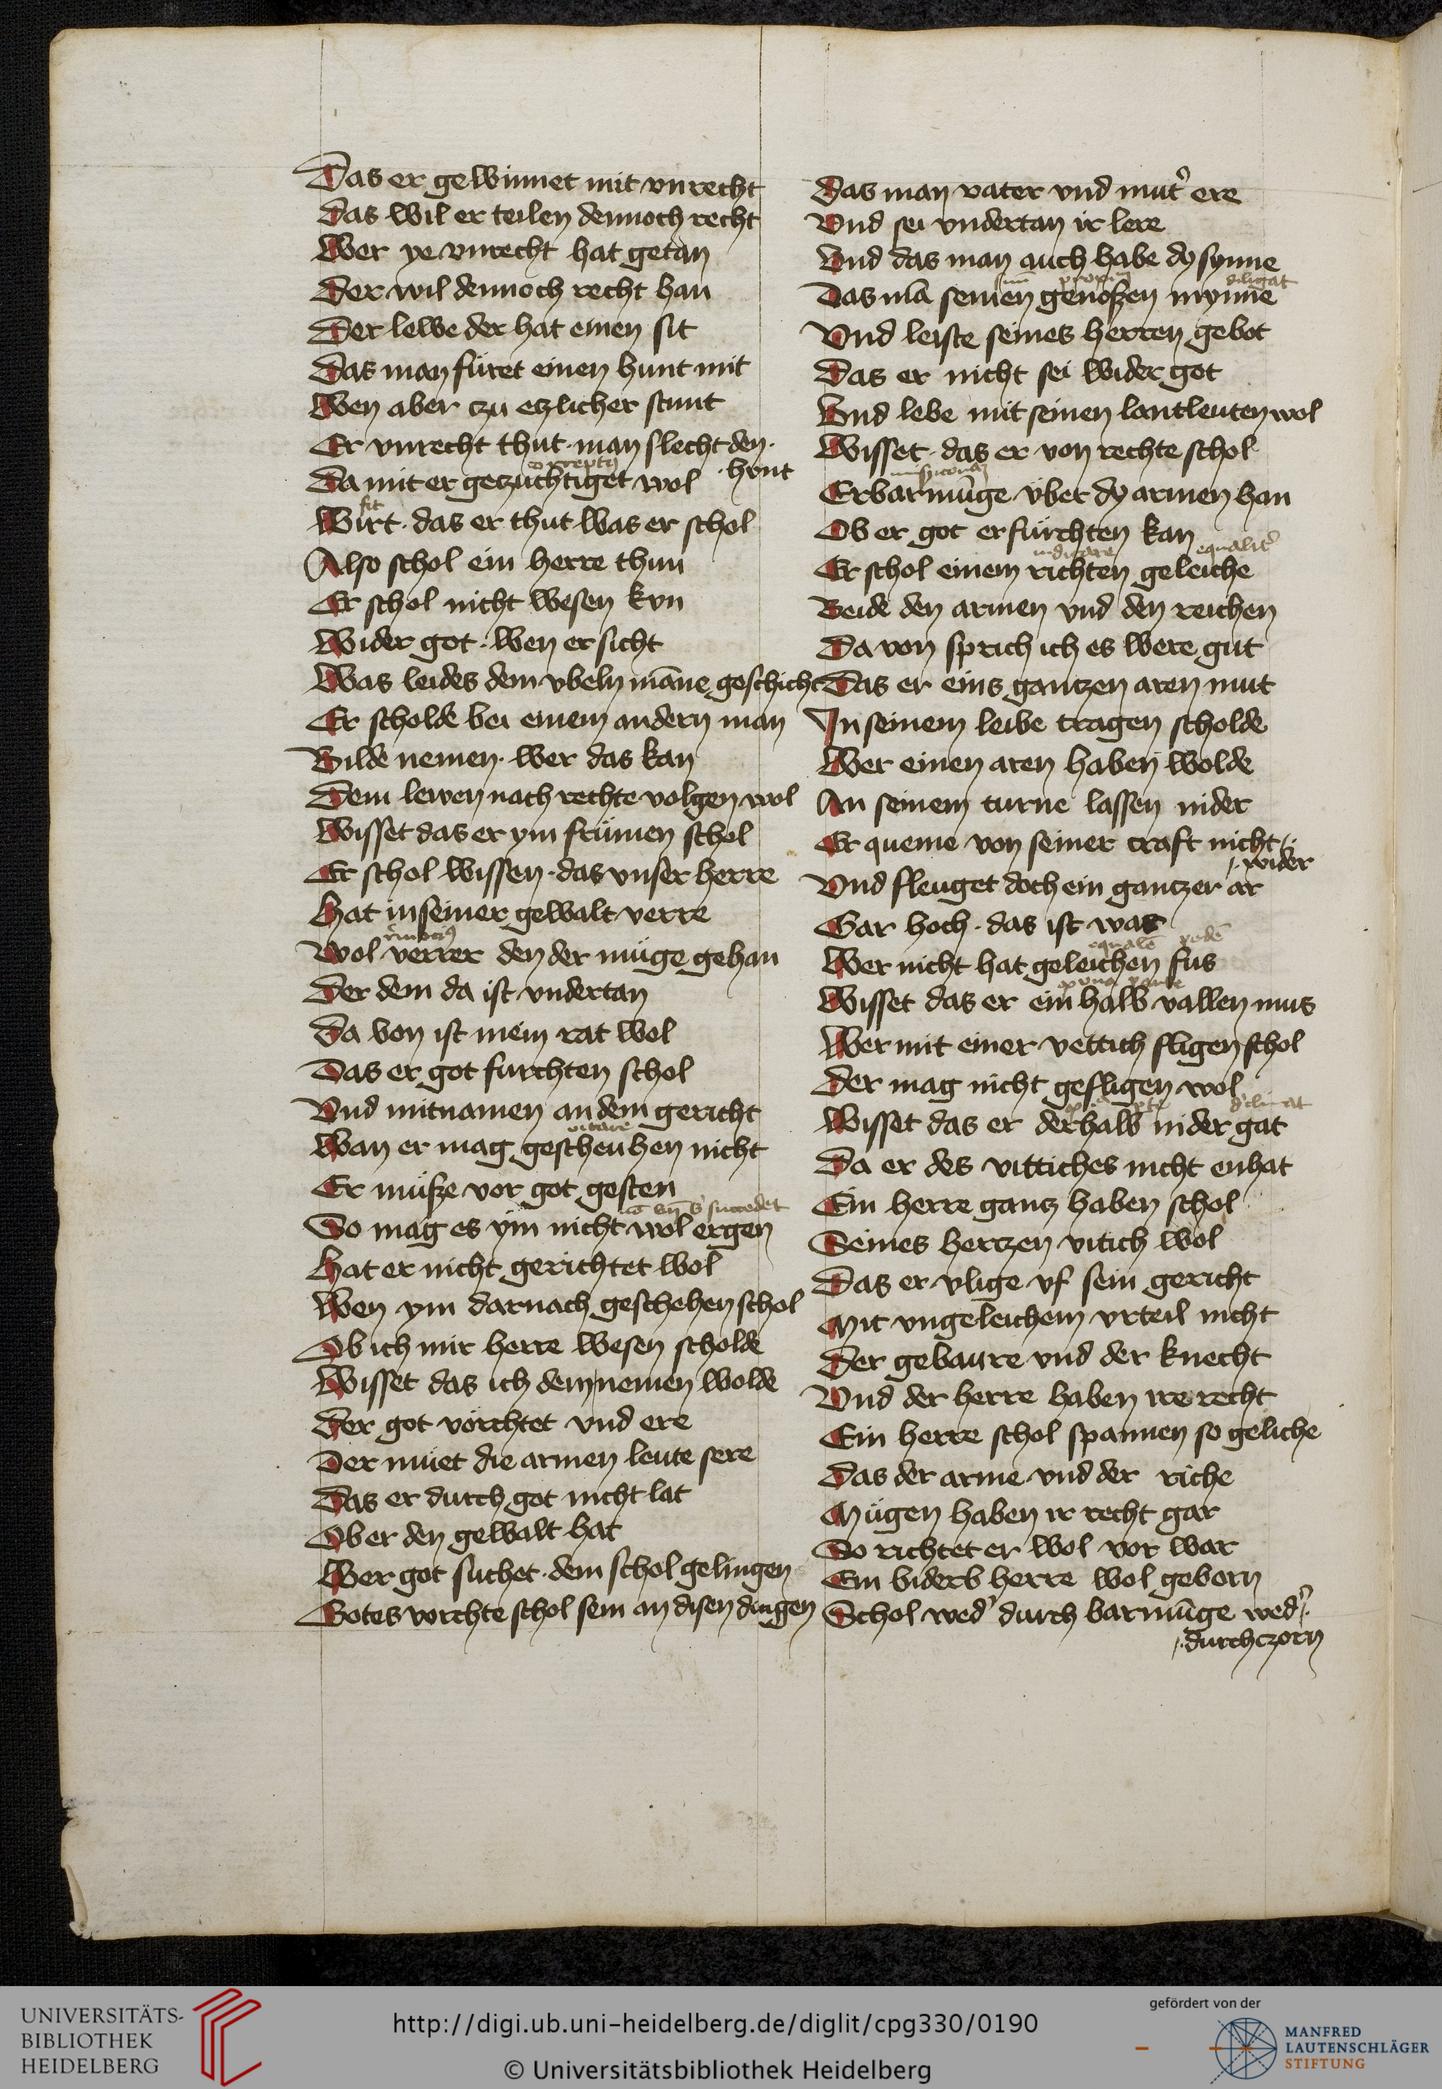 Das er gewinnet mit vnrecht
Das wil er teilen dennoch recht
Wer ye vnrecht hat getan
Der wil dennoch recht han
Der lewe der hat einen sit
Das man füret einen hunt mit
Wen aber czu etzlicher stunt
Er vnrecht thut · man slecht den ·
· hunt
Da mit er geczüchtiget wol
fit
Wirt · das er thut was er schol
Also schol ein herre thun
Er schol nicht wesen kvn
Wider got · wen er sicht
Was leides dem vbeln māne geschicht
Er scholde bei einem andern man
Bilde nemen · wer das kan
Dem lewen nach rechte volgen wol
Wisset das er ym frümen schol
Er schol wissen · das vnser herre
Hat in seiner gewalt verre
Wol verrer den der müge gehan
Der dem da ist vndertan
Da von ist mein rat wol
Das er got furchten schol
Vnd mitnamen an dem gericht
vitare
Wan er mag gescheuhen nicht
Er müsze vor got gesten
succedet
So mag es ym nicht wol ergen
Hat er nicht gerichtet wol
Wen ym darnach geschehen schol
Ob ich mir herre wesen scholde
Wisset das ich den nemen wolde
Der got vörchtet vnd ere
Der müet die armen leute sere
Das er durch got nicht lat
Ob er den gewalt hat
Wer got suchet · dem schol gelingen
Gotes vorchte schol sein an disen dingen
Das man vater vnd mut' ere
Vnd sei vndertan ir lere
Vnd das man auch habe dy synne
diligat
Das mā seinen genoszen mynne
Vnd leiste seines herren gebot
Das er nicht sei wider got
Vnd lebe mit seinen lantleuten wol
Wisset · das er von rechte schol
Erbarmūge vber dy armen han
Ob er got erfürchten kan
iudicare equalit'
Er schol einem richten geleiche
Beide den armen vnd den reichen
Da von sprich ich es were gut
Das er eins gantzen aren mut
In seinem leibe tragen scholde
Wer einen aren haben wolde
An seinem turne lassen nider
Er queme von seiner craft nicht
wider
Vnd fleuget doch ein gantzer ar
Gar hoch · das ist war
equalē pedē
Wer nicht hat geleichen fus
Wisset das er ein halb vallen mus
Wer mit einer vettich fligen schol
Der mag nicht gefligen wol
Wisset das er derhalb nider gat
Da er des vittiches nicht enhat
Ein herre gantz haben schol
Seines hertzen vitich wol
Das er vlige vf sein gericht
Mit vngeleichem vrteil nicht
Der gebaure vnd der knecht
Vnd der herre haben ire recht
Ein herre schol spannen so geliche
Das der arme vnd der riche
Mügen haben ir recht gar
So richtet er wol vor war
Ein biderb herre wol geborn
Schol wed' durch barmūge wed'
durch czorn
UNIVERSITÄTS-
BIBLIOTHEK
HEIDELBERG
http://digi.ub.uni-heidelberg.de/diglit/cpg330/0190
© Universitätsbibliothek Heidelberg
gefördert von der
MANFRED
LAUTENSCHLÄGER
STIFTUNG